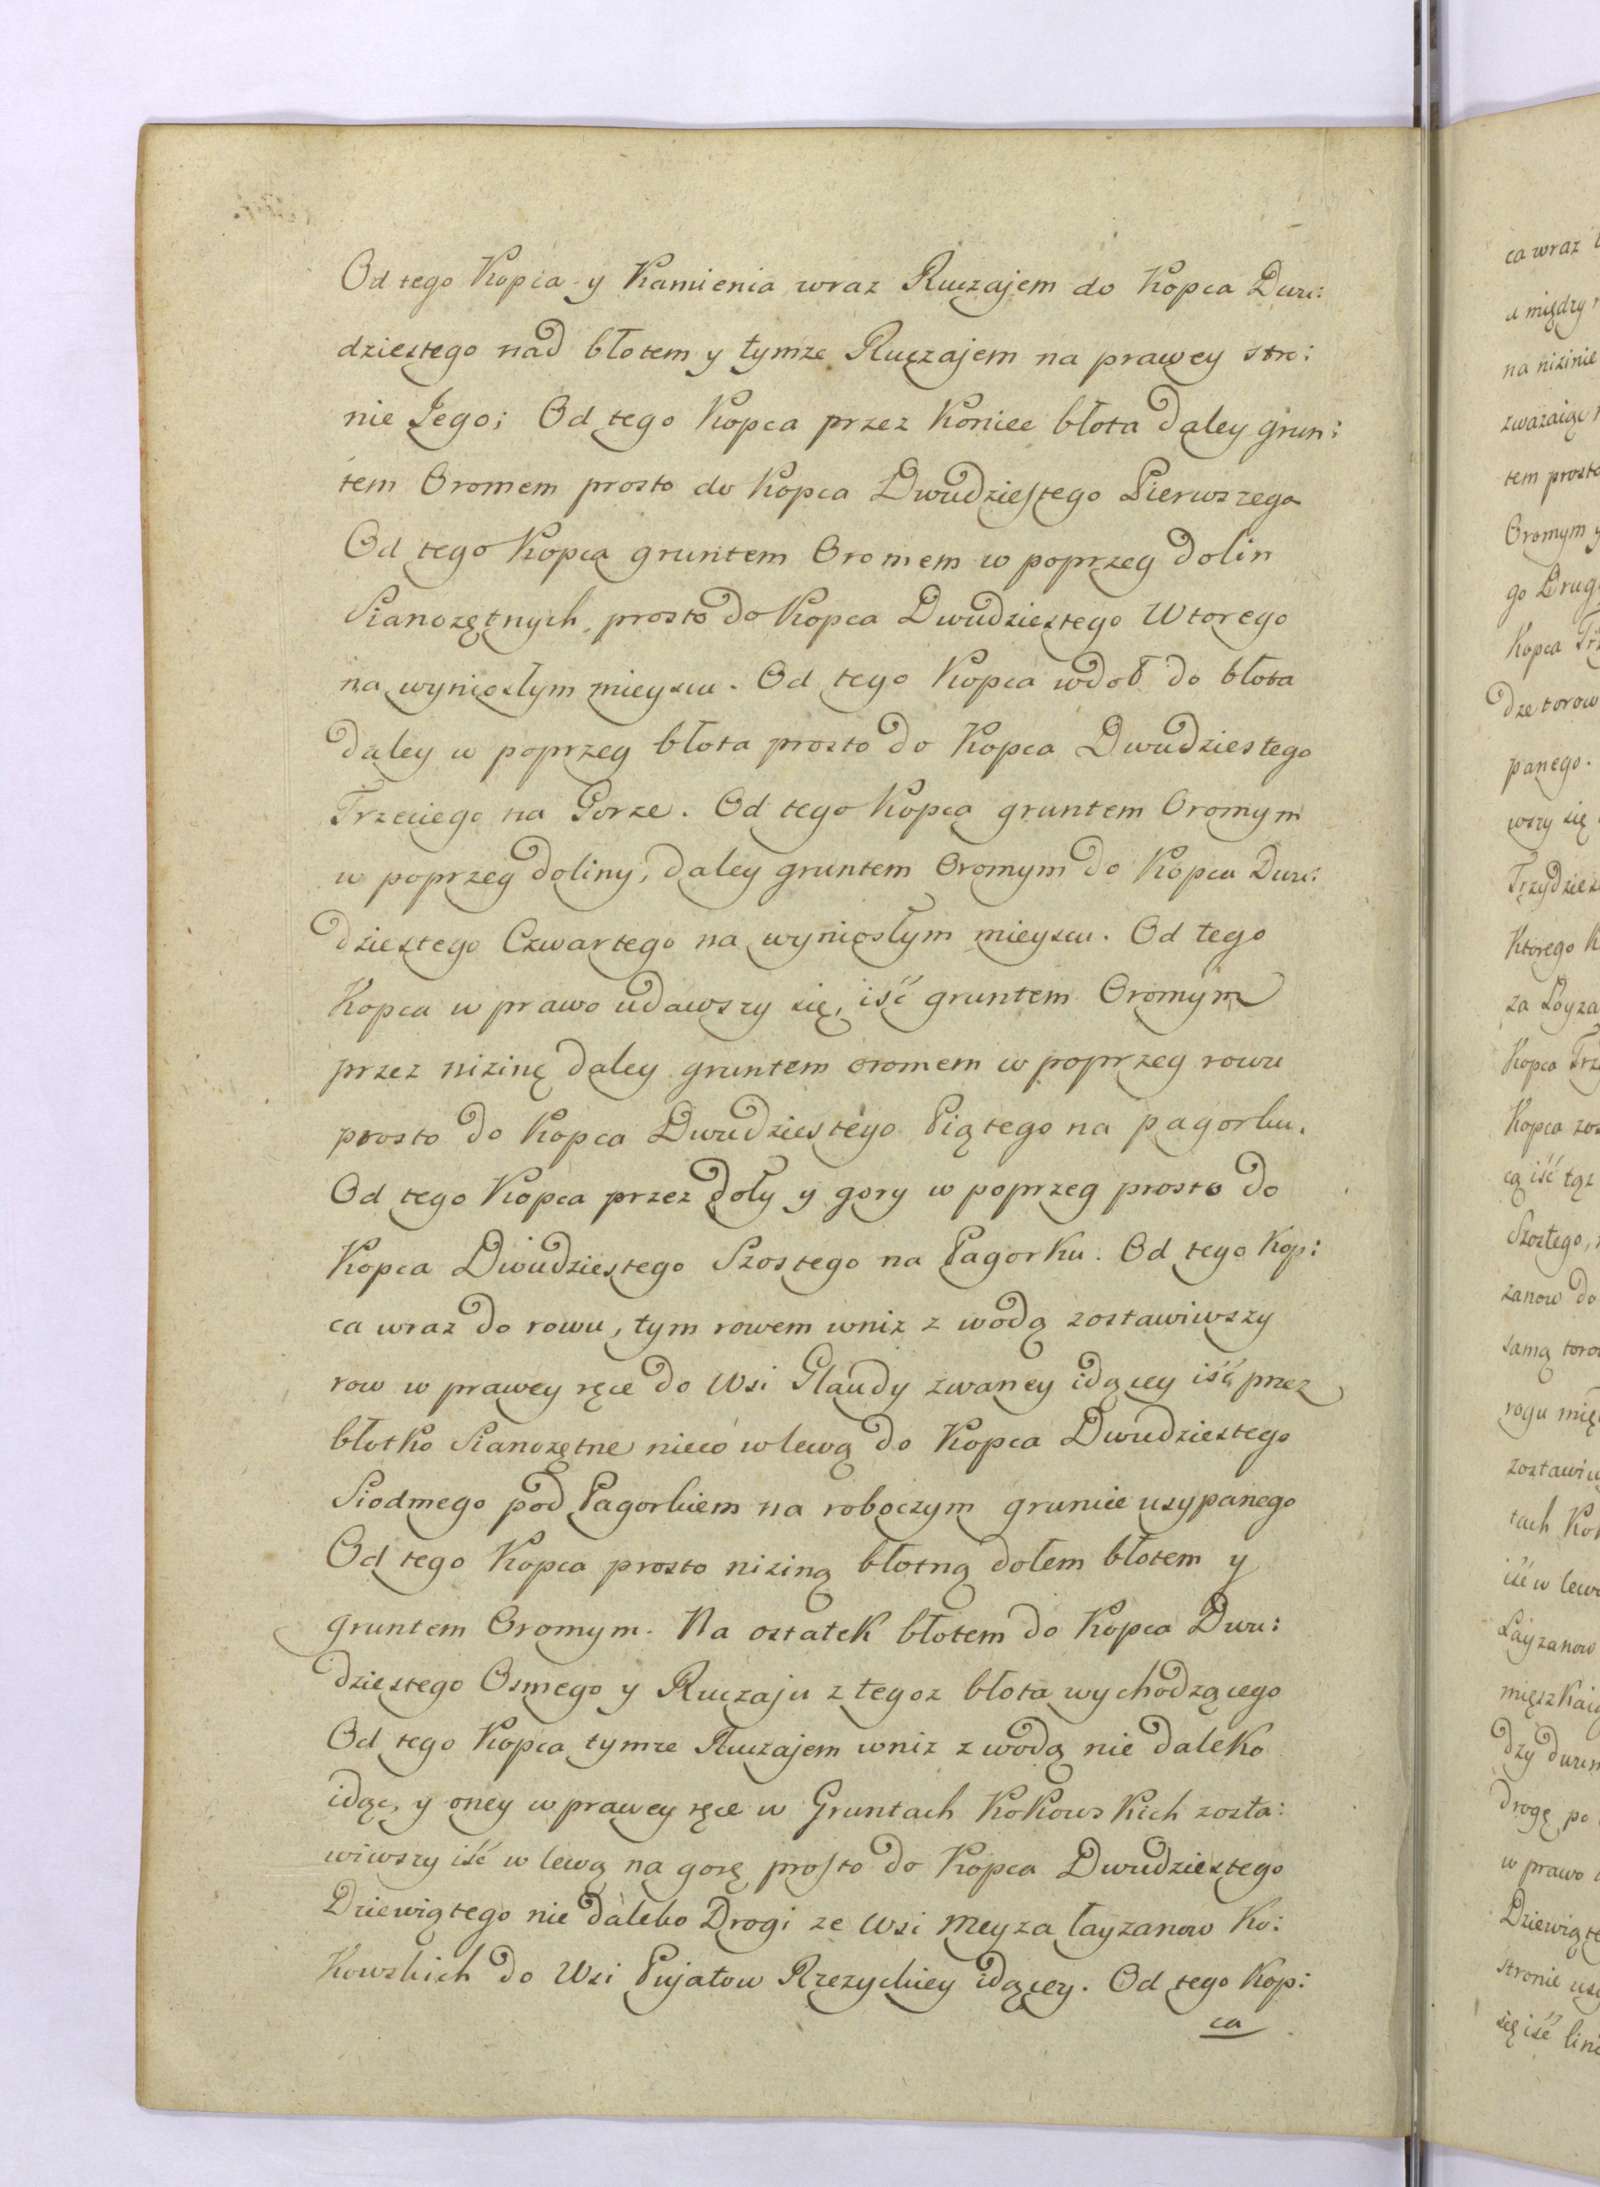 Od tego Kopca y Kamienia wraz Ruczajem do Kopca Dwu:
dziestego nad błotem y tymże Ruczajem na prawey stro:
nie Jego; Od tego Kopca przez Koniec błota daley grun:
tem Oromem prosto do Kopca Dwudziestego Pierwszego
Od tego Kopca gruntem Oromem w poprzeg dolin
Sianozętnych prosto do Kopca Dwudziestego Wtorego
na wyniosłym mieyscu. Od tego Kopca wdoł do błota
daley w poprzeg błota prosto do Kopca Dwudziestego
Trzeciego na Gorze. Od tego Kopca gruntem Oromym
w poprzeg doliny, daley gruntem Oromym do Kopca Dwu:
dziestego Czwartego na wyniosłym mieyscu. Od tego
Kopca w prawo udawszy się, iść gruntem Oromym
przez nizinę daley gruntem oromem w poprzeg rowu
prosto do Kopca Dwudziestego Piątego na pagorku.
Od tego Kopca przez doły y gory w poprzeg prosto do
Kopca Dwudziestego Szostego na Pagorku. Od tego Kop:
ca wraz do rowu, tym rowem wniz z wodą zostawiwszy
row w prawey ręce do Wsi Glaudy zwaney idącey iść przez
błotko Sianozętne nieco wlewą do Kopca Dwudziestego
Siodmego pod Pagorkiem na roboczym gruncie usypanego
Od tego Kopca prosto niziną błotną dołem błotem y
gruntem Oromym. Na ostatek błotem do Kopca Dwu:
dziestego Osmego y Ruczaju z tegoz błota wychodzącego
Od tego Kopca tymze Ruczajem wniz z wodą nie daleko
idąc, y oney w prawey ręce w Gruntach Kokowskich zosta:
wiwszy iść w lewą na gorę prosto do Kopca Dwudziestego
Dziewiątego nie daleko Drogi ze Wsi Meyza Łayzanow Ko:
Kowskich do Wsi Pujatow Rzezyckiey idącey. Od tego Kop:
ca
ca wraz
u między
na nizinie
zważaiąc
tem prosto
Oromym y
go Drug
Kopca
dze torow
panego.
wszy się
Trzydzies
Ktorego K
za Łoyza
Kopca Trz
Kopca zos
cą iść tąż
Szostego,
zanow do
samą toro
rogu mię
zostawiw
tach Kok
iść w lewo
Łayzanow
mięszkaią
dzy dwom
drogę po
w prawo
Dziewiąte
stronie usy
się iść lini